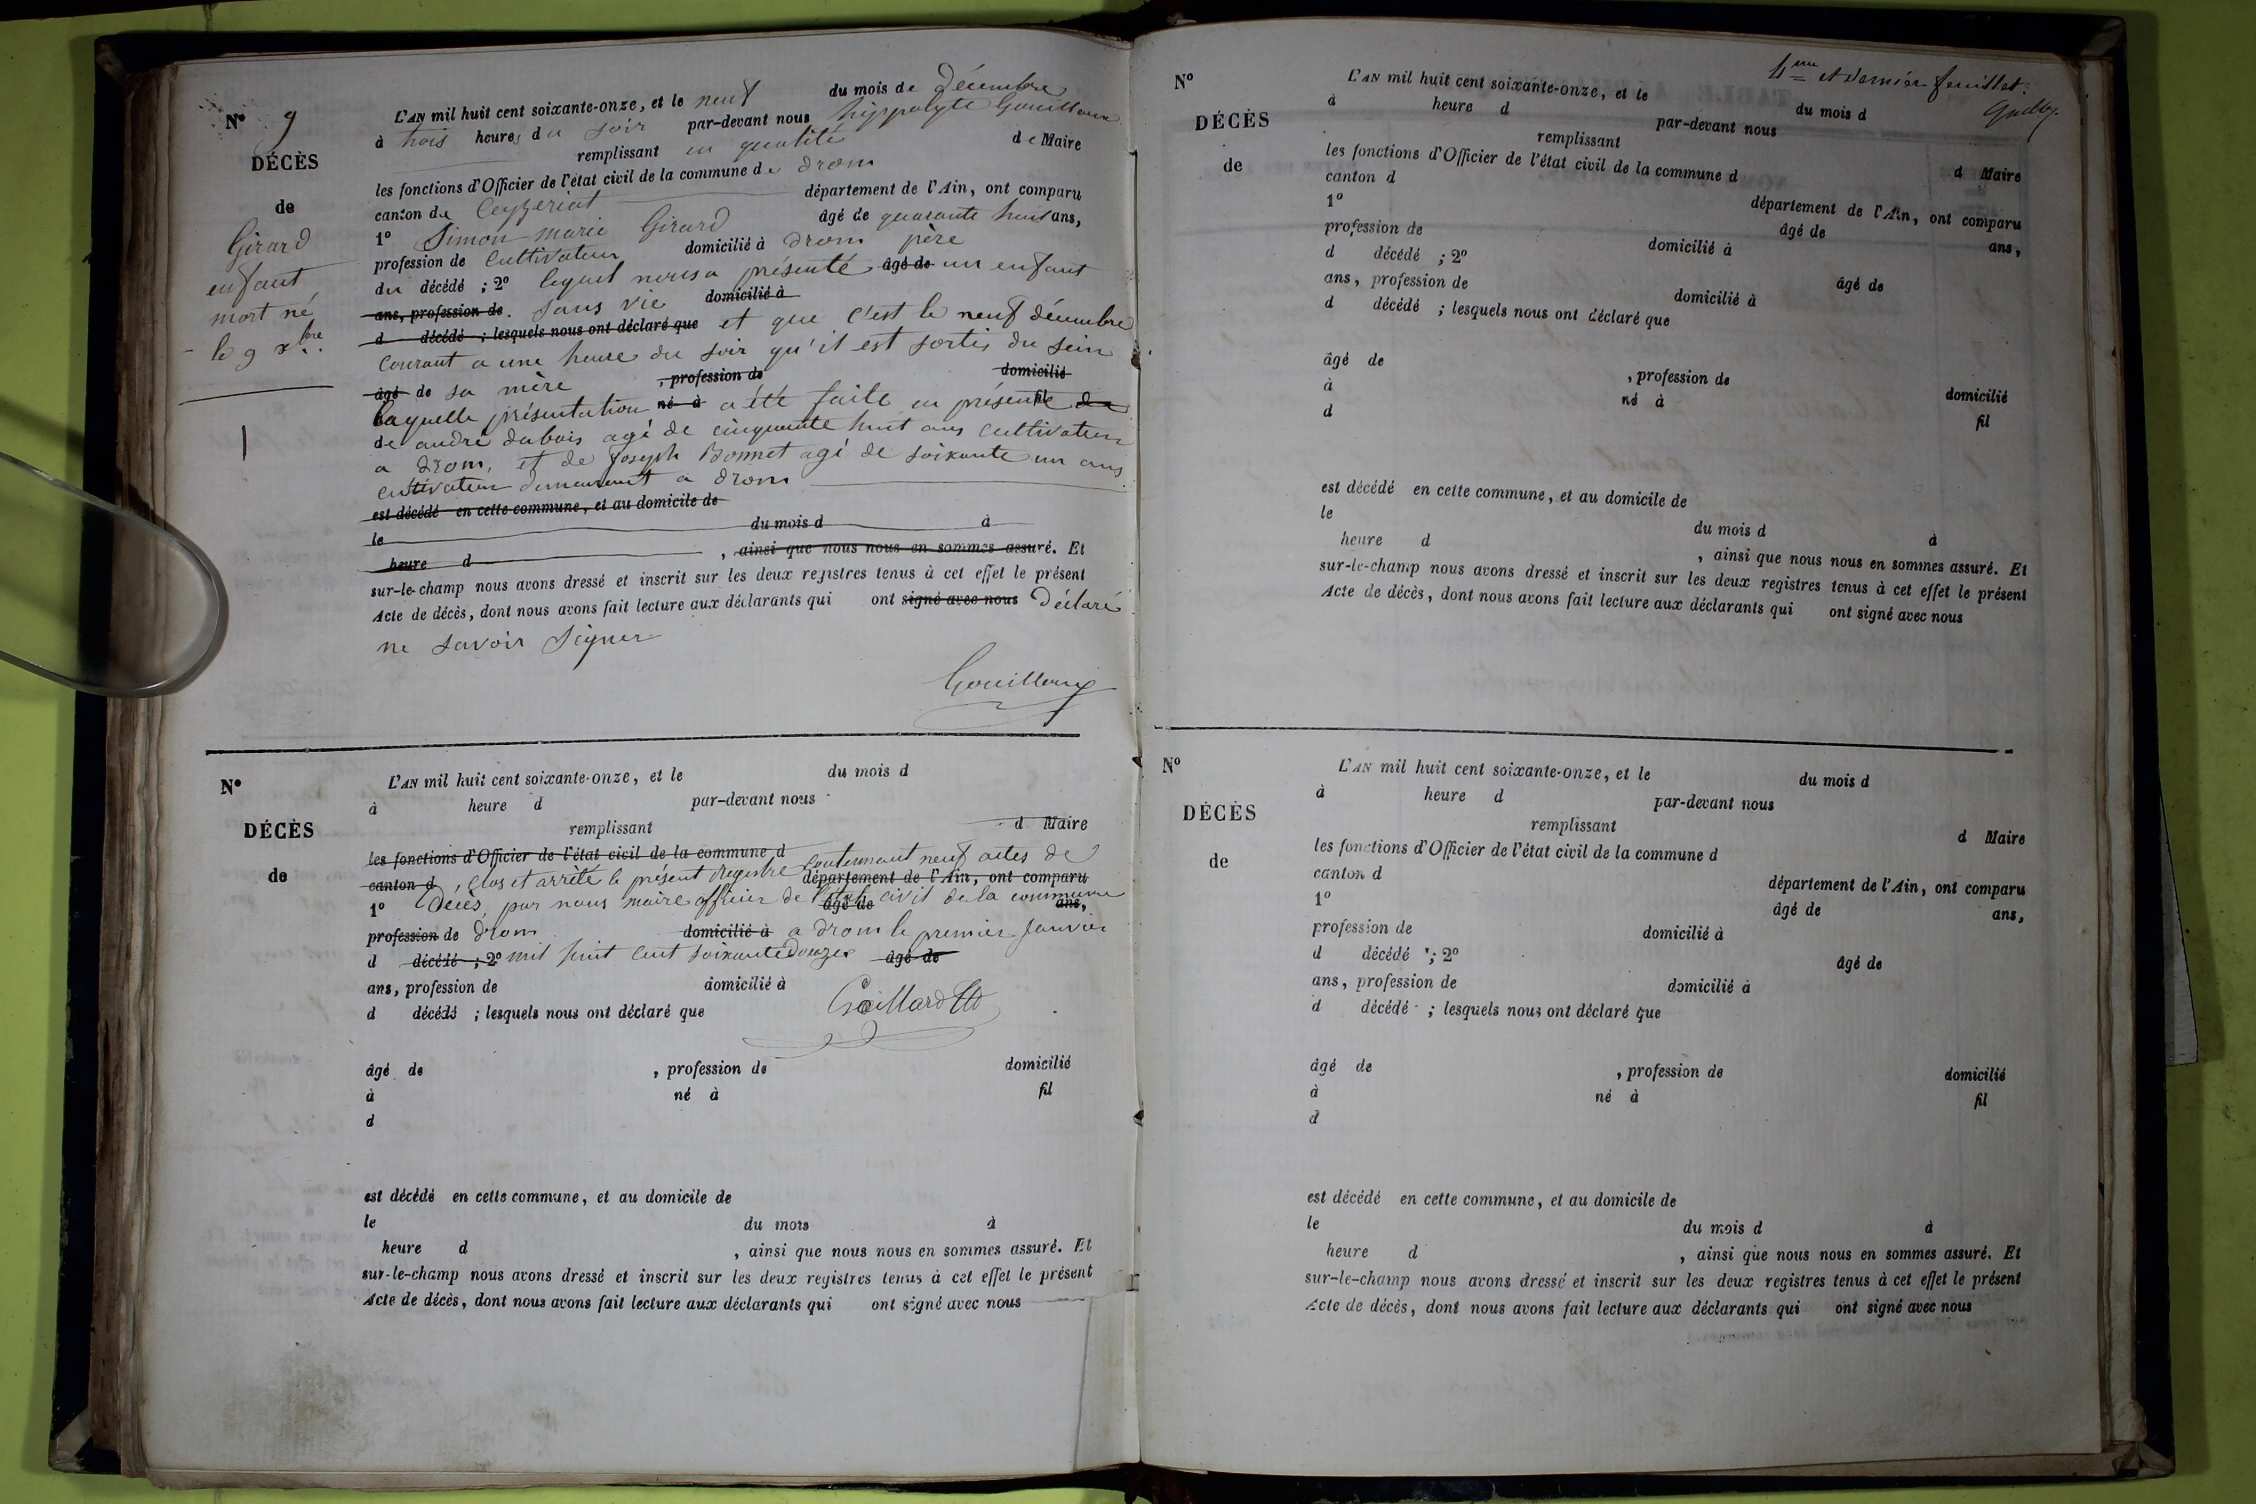 N° 9
DÉCÈS
de
Girard
enfant
mort né
le 9 xbre
L'AN mil huit cent soixante-onze, et le neuf du mois de décembre
à trois heures du soir par-devant nous hyppolyte Gouilloux
remplissant en qualité de Maire
les fonctions d'Officier de l'état civil de la commune de drom
canton de Ceyzeriat département de l'Ain, ont comparu
1° Simon marie Girard âgé de quarante huit ans,
profession de Cultivateur domicilié à drom père
du décédé ; 2° lequel nous a présenté âgé de un enfant
ans, profession de. sans vie domicilié à
d décédé ; lesquels nous ont déclaré que et que c'est le neuf décembre
courant a une heure du soir qu'il est sortis du sein
âgé de sa mère , profession de domicilié
laquelle présentation né à a été faite en présence fil de
de andré dubois agé de cinquante huit ans cultivateur
a drom, et de Joseph Bonnet agé de soixante un ans
cultivateur demeurant a drom
est décédé en cette commune, et au domicile de
le du mois d à
heure d , ainsi que nous nous en sommes assuré. Et
sur-le-champ nous avons dressé et inscrit sur les deux registres tenus à cet effet le présent
Acte de décès, dont nous avons fait lecture aux déclarants qui ont signé avec nous déclaré
ne savoir signer
Gouilloux
N°
DÉCÈS
de
L'AN mil huit cent soixante-onze, et le du mois d
à heure d par-devant nous
remplissant d Maire
les fonctions d'Officier de l'état civil de la commune d
canton d , clos et arrêté le présent Registre contennant neuf actes de département de l'Ain, ont comparu
1° Décès, par nous maire officier de l'état âgé de civil de la commune ans,
profession de drom domicilié à a drom le premier Janvier
d décédé ; 2° mil huit cent soixante douze âgé de
ans, profession de domicilié à
d décédé ; lesquels nous ont déclaré que
âgé de , profession de domicilié
à né à fil
d
est décédé en cette commune, et au domicile de
le du mois à
heure d , ainsi que nous nous en sommes assuré. Et
sur-le-champ nous avons dressé et inscrit sur les deux registres tenus à cet effet le présent
Acte de décès, dont nous avons fait lecture aux déclarants qui ont signé avec nous
4me et dernier feuillet.
N°
DÉCÈS
de
L'AN mil huit cent soixante-onze, et le du mois d
à heure d par-devant nous
remplissant d Maire
les fonctions d'Officier de l'état civil de la commune d
canton d département de l'Ain, ont comparu
1° âgé de ans,
profession de domicilié à
d décédé ; 2° âgé de
ans, profession de domicilié à
d décédé ; lesquels nous ont déclaré que
âgé de , profession de domicilié
à né à fil
d
est décédé en cette commune, et au domicile de
le du mois d à
heure d , ainsi que nous nous en sommes assuré. Et
sur-le-champ nous avons dressé et inscrit sur les deux registres tenus à cet effet le présent
Acte de décès, dont nous avons fait lecture aux déclarants qui ont signé avec nous
N°
DÉCÈS
de
L'AN mil huit cent soixante-onze, et le du mois d
à heure d par-devant nous
remplissant d Maire
les fonctions d'Officier de l'état civil de la commune d
canton d département de l'Ain, ont comparu
1° âgé de ans,
profession de domicilié à
d décédé ; 2° âgé de
ans, profession de domicilié à
d décédé ; lesquels nous ont déclaré que
âgé de , profession de domicilié
à né à fil
d
est décédé en cette commune, et au domicile de
le du mois d à
heure d , ainsi que nous nous en sommes assuré. Et
sur-le-champ nous avons dressé et inscrit sur les deux registres tenus à cet effet le présent
Acte de décès, dont nous avons fait lecture aux déclarants qui ont signé avec nous